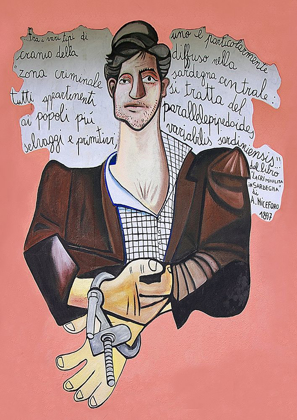 Fra i vari tipi di
cranio della
zona criminale
tutti appartenenti
ai popoli più
selvaggi e primitivi,
uno è particolarmente
diffuso nella
sardegna centrale.
si tratta del
parallelepipedoides
variabilis sardiniensis"
dal libro
"LA CRIMINALITÀ
in SARDEGNA"
di
A. NICEFORO
1897